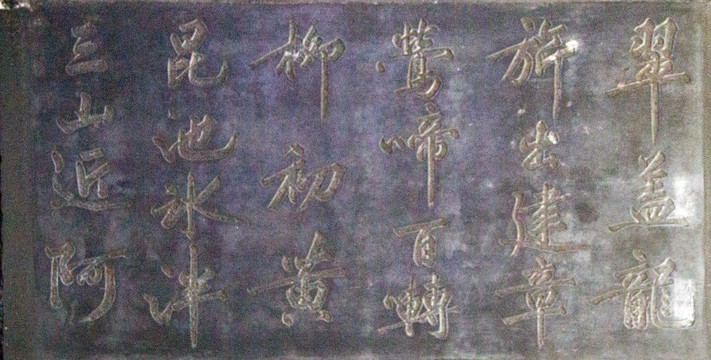 翠盖龍
旂出建章
鶯啼百轉
柳初黄
昆池冰泮
三山近阿